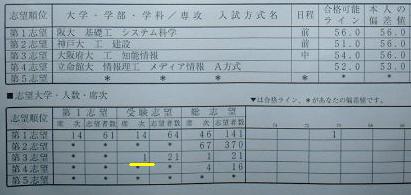 志望順位 大学・学部・学科／専攻 入試方式名 日程 合格可能ライン 本人の偏差値
第1志望 阪大 基礎工 システム科学 前 56.0 56.0
第2志望 神戸大 工 建設 前 51.0 56.0
第3志望 大阪府大 工 知能情報 中 54.0 56.0
第4志望 立命館大 情報理工 メディア情報 A方式 52.0 53.0
第5志望 * * * * * *
■志望大学・人数・席次
▼は合格ライン、*があなたの偏差値です。
志望順位 第1志望 受験志望 総志望
席次 志望者数 席次 志望者数 席次 志望者数
第1志望 14 61 14 64 46 141
第2志望 * * * * 67 370
第3志望 * * 1 21 1 21
第4志望 * * * * 4 16
第5志望 * * * * * *